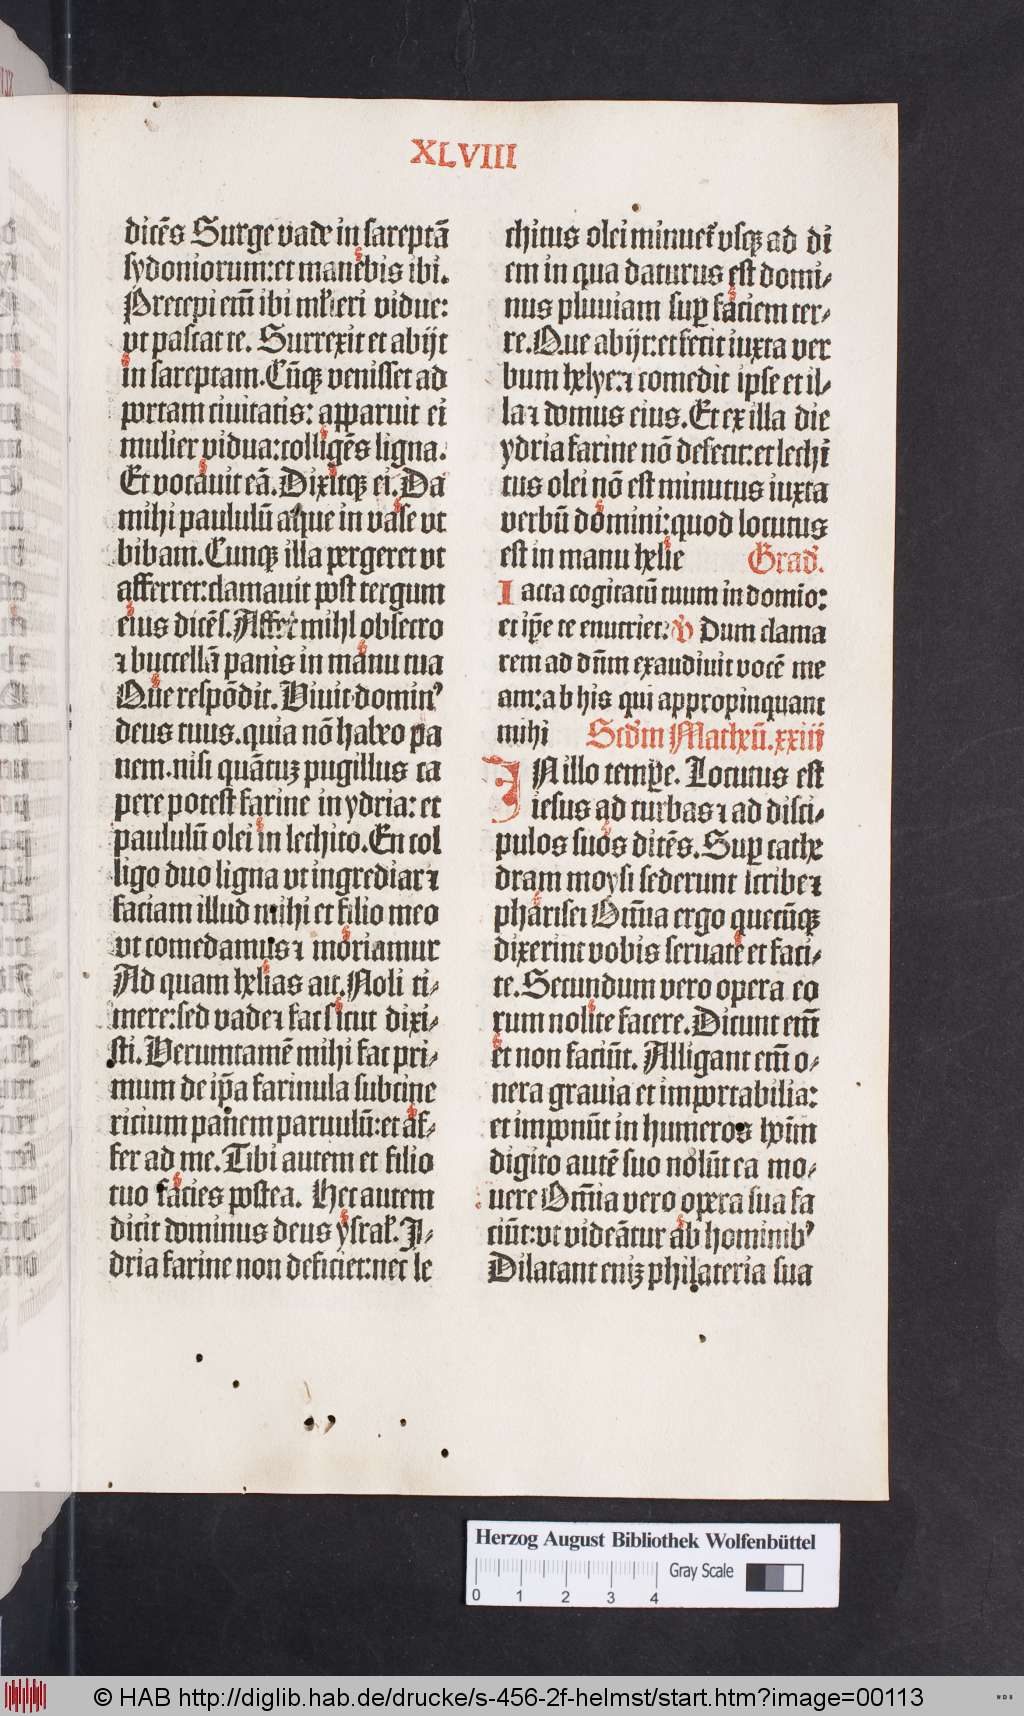 XLVIII
dicēs Surge vade in sareptā
sydoniorum: et manebis ibi.
Precepi em̄ ibi mĺieri vidue:
vt pascat te. Surrexit et abijt
in sareptam. Cūqꝫ venisset ad
portam ciuitatis: apparuit ei
mulier vidua: colligēs ligna.
Et vocauit eā. Dixitqꝫ ei. Da
mihi paululū aque in vase vt
bibam. Cunqꝫ illa pergeret vt
afferret: clamauit post tergum
eius dicēs. Affer mihi obsecro
⁊ buccellā panis in manu tua
Que respōdit. Viuit dominꝰ
deus tuus. quia nō habeo pa
nem. nisi quātuꝫ pugillus ca
pere potest farine in ydria: et
paululū olei in lechito. En col
ligo duo ligna vt ingrediar ⁊
faciam illud mihi et filio meo
vt comedamus ⁊ moriamur
Ad quam helias ait. Noli ti⸗
mere: sed vade ⁊ fac sicut dixi⸗
sti. Veruntamē mihi fac pri⸗
mum de ip̄a farinula subcine
ricium panem paruulū: et af⸗
fer ad me. Tibi autem et filio
tuo facies postea. Hec autem
dicit dominus deus ysraĺ. J⸗
dria farine non deficiet: nec le
chitus olei minuet᷑ vsqꝫ ad di
em in qua daturus est domi⸗
nus pluuiam suꝑ faciem ter⸗
re. Que abijt. et fecit iuxta ver
bum helye: ⁊ comedit ipse et il⸗
la ⁊ domus eius. Et ex illa die
ydria farine nō defecit: et lechi
tus olei nō est minutus iuxta
verbū domini: quod locutus
est in manu helie Grad̄.
Iacta cogitatū tuum in domīo:
et ip̄e te enutriet. ℣ Dum clama
rem ad dn̄m exaudiuit vocē me
am: ab his qui appropinquant
mihi Scd̄m Matheū. xxiii
IN illo tempe̱. Locutus est
iesus ad turbas ⁊ ad disci⸗
pulos suos dicēs. Suꝑ cathe
dram moysi sederunt scribe ⁊
pharisei Om̄ia ergo quecūqꝫ
dixerint vobis seruate et faci⸗
te. Secundum vero opera eo
rum nolite facere. Dicunt em̄
et non faciūt. Alligant em̄ o⸗
nera grauia et importabilia:
et imponūt in humeros hoīm
digito autē suo nolūt ea mo⸗
uere Om̄ia vero opera sua fa
ciūt: vt videātur ab hominibꝰ
Dilatant eniꝫ philateria sua
Herzog August Bibliothek Wolfenbüttel
Gray Scale
0 1 2 3 4
© HAB http://diglib.hab.de/drucke/s-456-2f-helmst/start.htm?image=00113